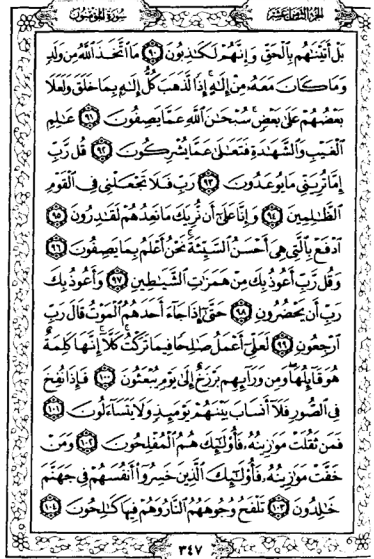 الجزء الثامن عشر
سورة المؤمنون
بَلْ أَتَيْنَٰهُم بِٱلْحَقِّ وَإِنَّهُمْ لَكَٰذِبُونَ ٩٠ مَا ٱتَّخَذَ ٱللَّهُ مِن وَلَدٍ
وَمَا كَانَ مَعَهُۥ مِنْ إِلَٰهٍ إِذًا لَّذَهَبَ كُلُّ إِلَٰهٍۭ بِمَا خَلَقَ وَلَعَلَا
بَعْضُهُمْ عَلَىٰ بَعْضٍ سُبْحَٰنَ ٱللَّهِ عَمَّا يَصِفُونَ ٩١ عَٰلِمِ
ٱلْغَيْبِ وَٱلشَّهَٰدَةِ فَتَعَٰلَىٰ عَمَّا يُشْرِكُونَ ٩٢ قُل رَّبِّ
إِمَّا تُرِيَنِّى مَا يُوعَدُونَ ٩٣ رَبِّ فَلَا تَجْعَلْنِى فِى ٱلْقَوْمِ
ٱلظَّٰلِمِينَ ٩٤ وَإِنَّا عَلَىٰٓ أَن نُّرِيَكَ مَا نَعِدُهُمْ لَقَٰدِرُونَ ٩٥
ٱدْفَعْ بِٱلَّتِى هِىَ أَحْسَنُ ٱلسَّيِّئَةَ نَحْنُ أَعْلَمُ بِمَا يَصِفُونَ ٩٦
وَقُل رَّبِّ أَعُوذُ بِكَ مِنْ هَمَزَٰتِ ٱلشَّيَٰطِينِ ٩٧ وَأَعُوذُ بِكَ
رَبِّ أَن يَحْضُرُونِ ٩٨ حَتَّىٰٓ إِذَا جَآءَ أَحَدَهُمُ ٱلْمَوْتُ قَالَ رَبِّ
ٱرْجِعُونِ ٩٩ لَعَلِّىٓ أَعْمَلُ صَٰلِحًا فِيمَا تَرَكْتُ كَلَّآ إِنَّهَا كَلِمَةٌ
هُوَ قَآئِلُهَا وَمِن وَرَآئِهِم بَرْزَخٌ إِلَىٰ يَوْمِ يُبْعَثُونَ ١٠٠ فَإِذَا نُفِخَ
فِى ٱلصُّورِ فَلَآ أَنسَابَ بَيْنَهُمْ يَوْمَئِذٍ وَلَا يَتَسَآءَلُونَ ١٠١
فَمَن ثَقُلَتْ مَوَٰزِينُهُۥ فَأُو۟لَٰٓئِكَ هُمُ ٱلْمُفْلِحُونَ ١٠٢ وَمَنْ
خَفَّتْ مَوَٰزِينُهُۥ فَأُو۟لَٰٓئِكَ ٱلَّذِينَ خَسِرُوٓا۟ أَنفُسَهُمْ فِى جَهَنَّمَ
خَٰلِدُونَ ١٠٣ تَلْفَحُ وُجُوهَهُمُ ٱلنَّارُ وَهُمْ فِيهَا كَٰلِحُونَ ١٠٤
٣٤٧